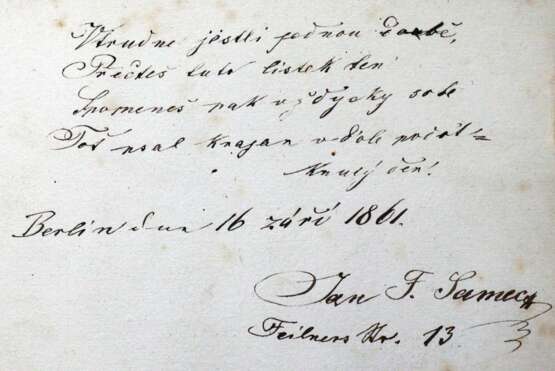 V trudne jestli jednou době,
Přečteš tuto lístek ten
Spomeneš pak vždycky sobě
Toť psal krajan v dole
den!
Berlín dne 16 září 1861.
Jan F. Samec
Feilners Str. 13.